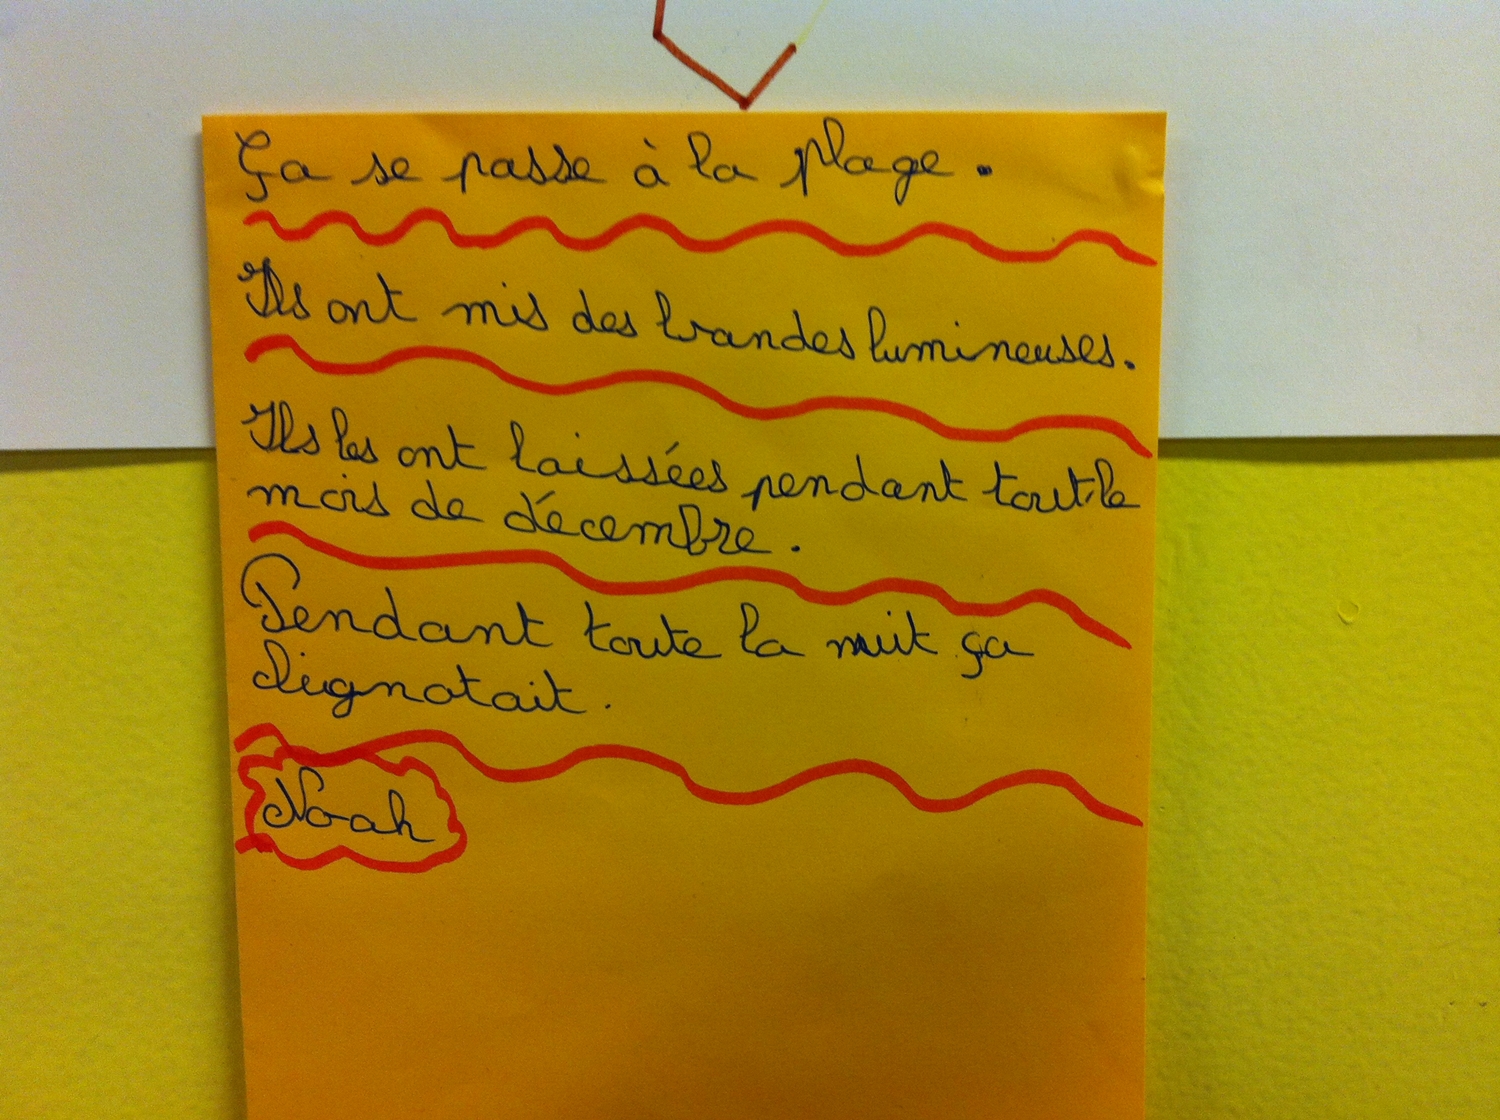 Ça se passe à la plage.
Ils ont mis des bandes lumineuses.
Ils les ont laissées pendant tout le
mois de décembre.
Pendant toute la nuit ça
clignotait.
Noah